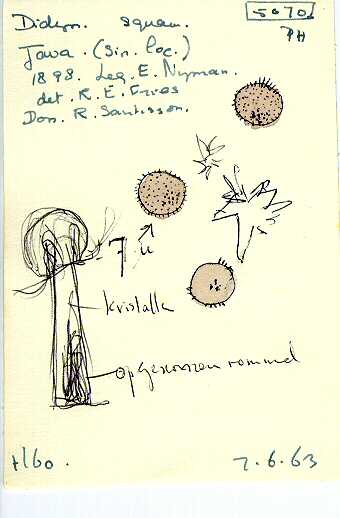 5070
PH
Didym. squam.
Java. (sin. loc.)
1898. Leg. E. Nyman.
det. R. E. Fries
Don. R. Santesson.
7 µ
kristalle
opgenomen rommel
H160.
7.6.63